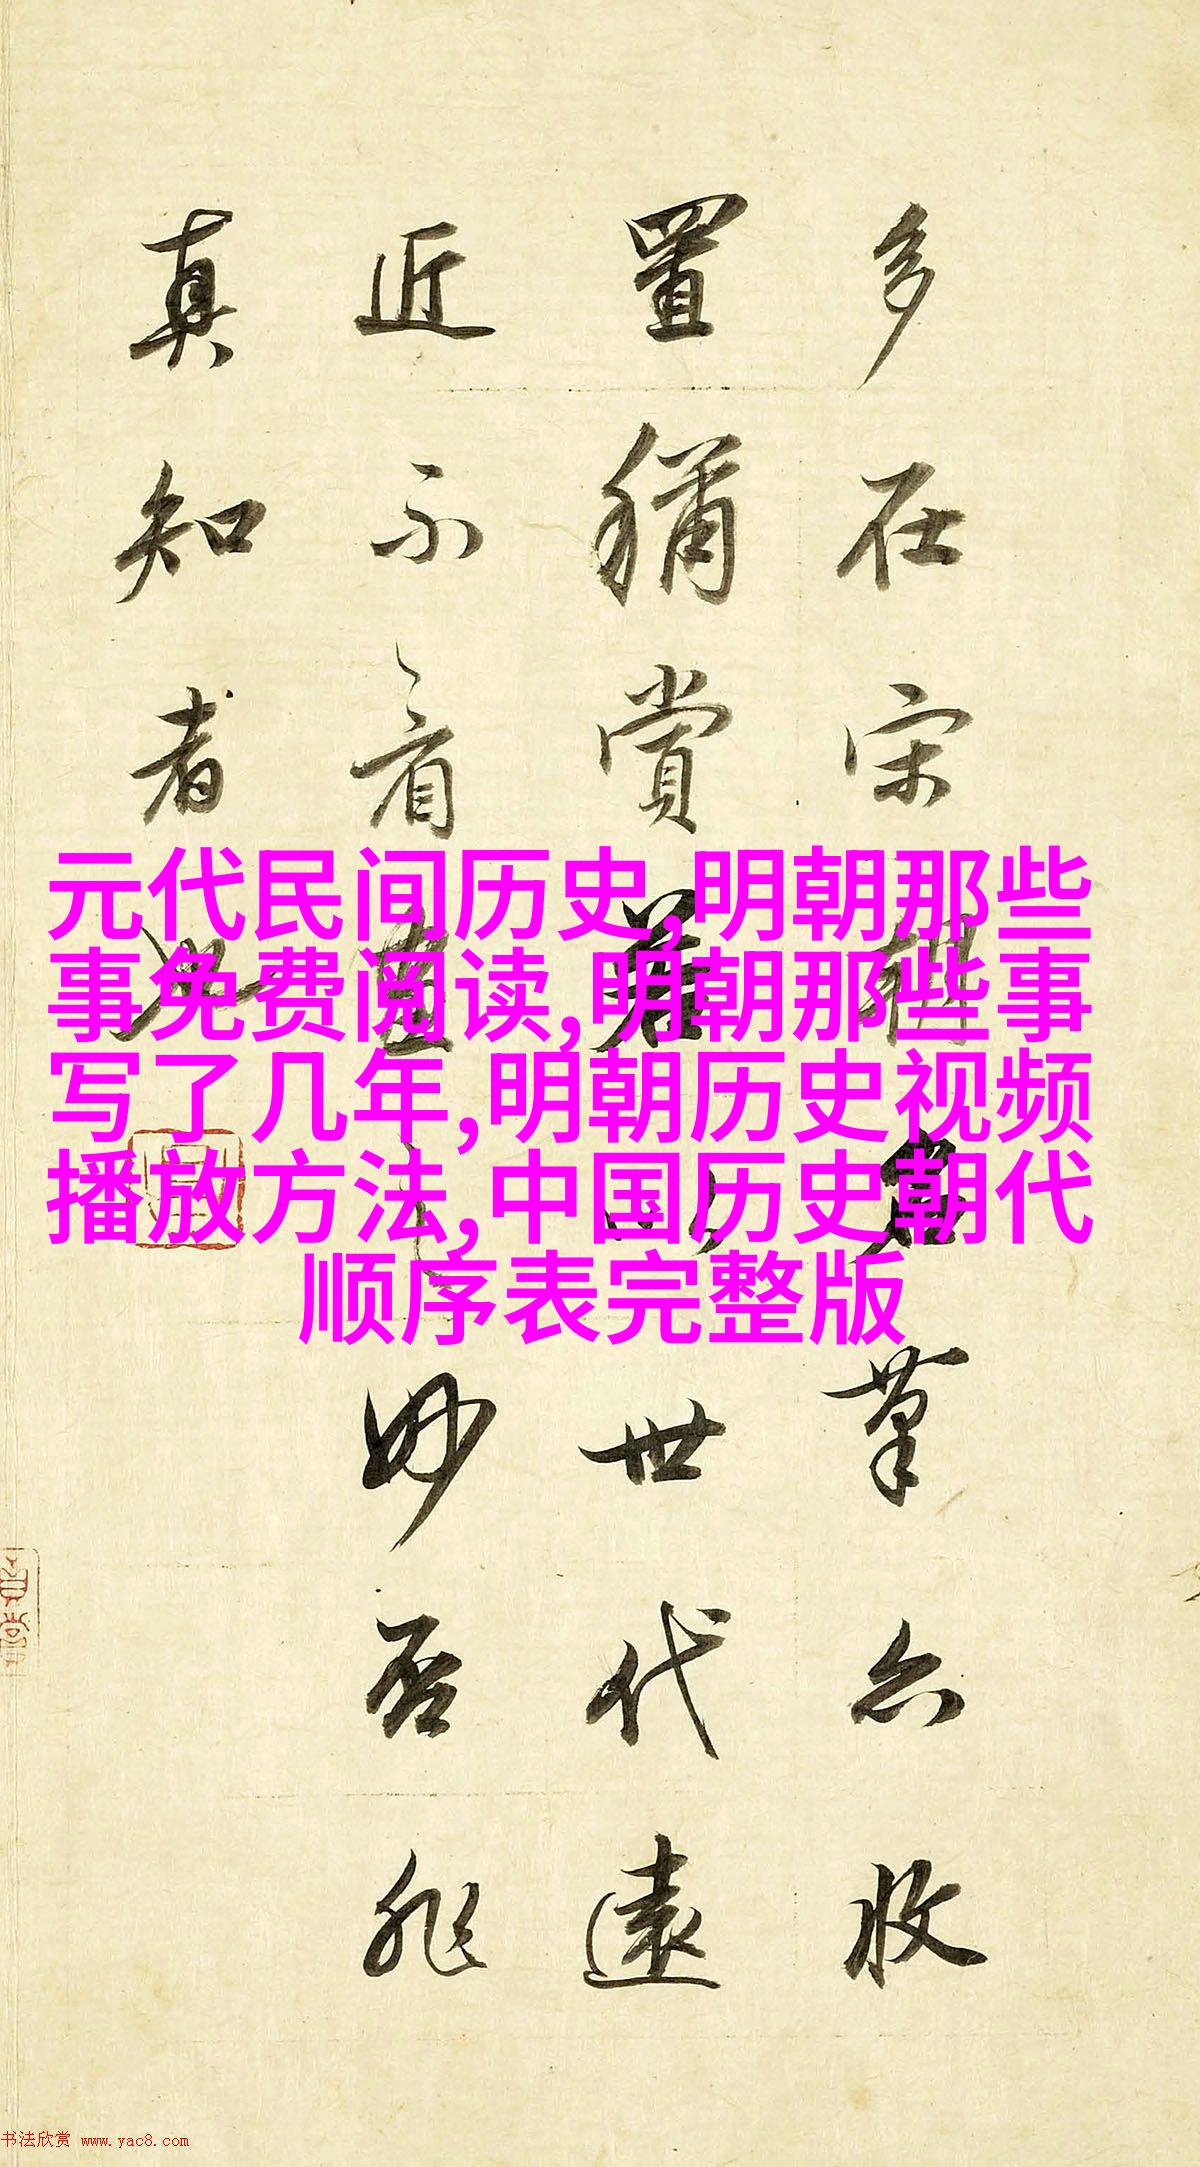 多在宋朝名筆亦收
置稱賞若以世代遠
近不看畫之妙否非
真知者也
元代民间历史,明朝那些
事免费阅读,明朝那些事
写了几年,明朝历史视频
播放方法,中国历史朝代
顺序表完整版
书法欣赏 www.yac8.com